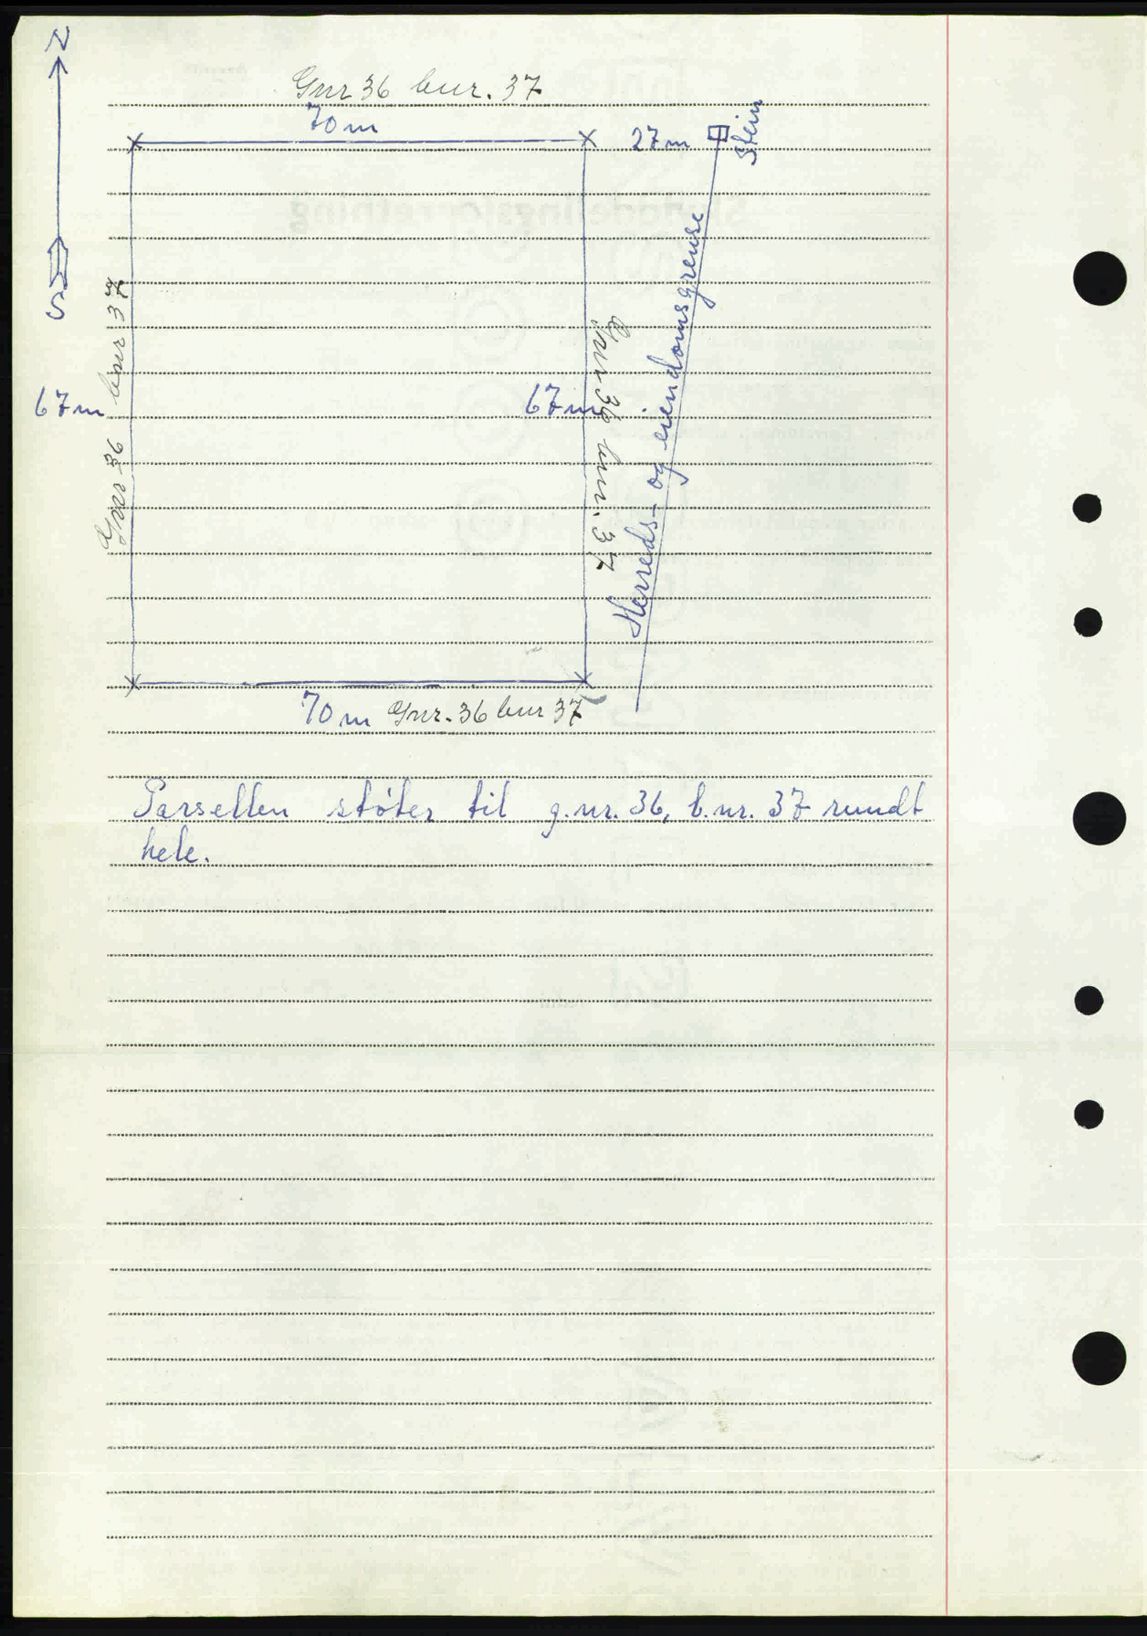 N
Gnr 36 bnr. 37
70 m
27 m
Stein
S
Gnr 36 bnr 37
67 m
67 m
Gnr 36 bnr. 37
Herreds- og eiendomsgrense
70 m Gnr. 36 bnr 37
Parsellen støter til g.nr. 36, b.nr. 37 rundt
hele.